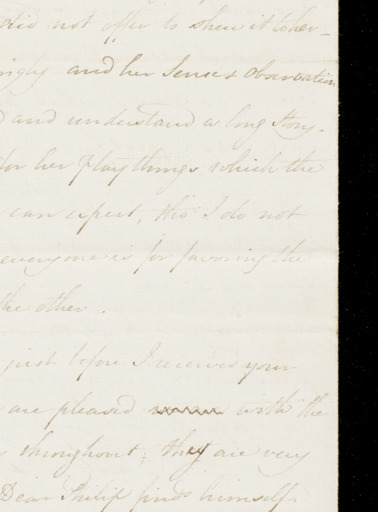 did not offer to shew it to her -
and her Sense & Observation
and understand a long Story -
for her Playthings which the
can expect, tho' I do not
everyone is for favoring the
the other .
just before I received your
are pleased with the
throughout ; they are very
Dear Philip finds himself